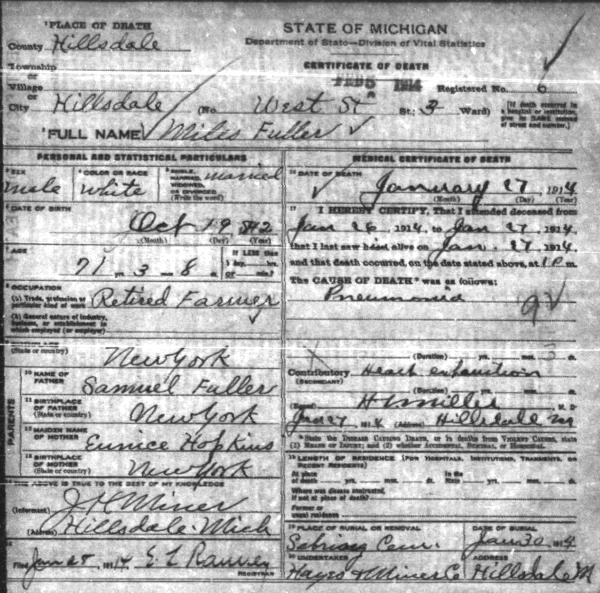 ¹PLACE OF DEATH
County Hillsdale
Township
or
Village
or
City Hillsdale (No. West St St.; 3 Ward)
STATE OF MICHIGAN
Department of State—Division of Vital Statistics
CERTIFICATE OF DEATH
FEB 5 1914 Registered No. 6
[If death occurred in a hospital or institution, give its NAME instead of street and number.]
²FULL NAME Miles Fuller
PERSONAL AND STATISTICAL PARTICULARS
³SEX male
⁴COLOR OR RACE white
⁵SINGLE, MARRIED, WIDOWED, OR DIVORCED (Write the word) married
⁶DATE OF BIRTH
Oct 19 842
(Month) (Day) (Year)
⁷AGE
71 yrs. 3 mos. 8 ds.
If LESS than 1 day, hrs. or min.
⁸OCCUPATION
(a) Trade, profession or particular kind of work Retired Farmer
(b) General nature of industry, business, or establishment in which employed (or employer)
(State or country) New York
¹⁰NAME OF FATHER Samuel Fuller
¹¹BIRTHPLACE OF FATHER (State or country) New York
¹²MAIDEN NAME OF MOTHER Eunice Hopkins
¹³BIRTHPLACE OF MOTHER (State or country) New York
PARENTS
¹⁴THE ABOVE IS TRUE TO THE BEST OF MY KNOWLEDGE
(Informant) J H Miner
(Address) Hillsdale Mich
Filed Jan 28, 1914
REGISTRAR
MEDICAL CERTIFICATE OF DEATH
¹⁶DATE OF DEATH
January 27, 1914
(Month) (Day) (Year)
¹⁷I HEREBY CERTIFY, That I attended deceased from
Jan 26, 1914, to Jan 27, 1914,
that I last saw him alive on Jan. 27, 1914,
and that death occurred, on the date stated above, at 1 P. m.
The CAUSE OF DEATH* was as follows:
Pneumonia
(Duration) yrs. mos. 3 ds.
Contributory Heart exhaustion
(SECONDARY)
(Duration) yrs. mos. ds.
(Signed) H Miller M. D.
Jan 27, 1914 (Address) Hillsdale M
*State the DISEASE CAUSING DEATH, or in deaths from VIOLENT CAUSES, state (1) MEANS OF INJURY; and (2) whether ACCIDENTAL, SUICIDAL, or HOMICIDAL.
¹⁸LENGTH OF RESIDENCE (FOR HOSPITALS, INSTITUTIONS, TRANSIENTS, OR RECENT RESIDENTS)
At place of death yrs. mos. ds. In the State yrs. mos. ds.
Where was disease contracted, if not at place of death?
Former or usual residence
¹⁹PLACE OF BURIAL OR REMOVAL
Cem.
DATE OF BURIAL
Jan 30, 1914
²⁰UNDERTAKER
Hayes & Miner Co
ADDRESS
Hillsdale M